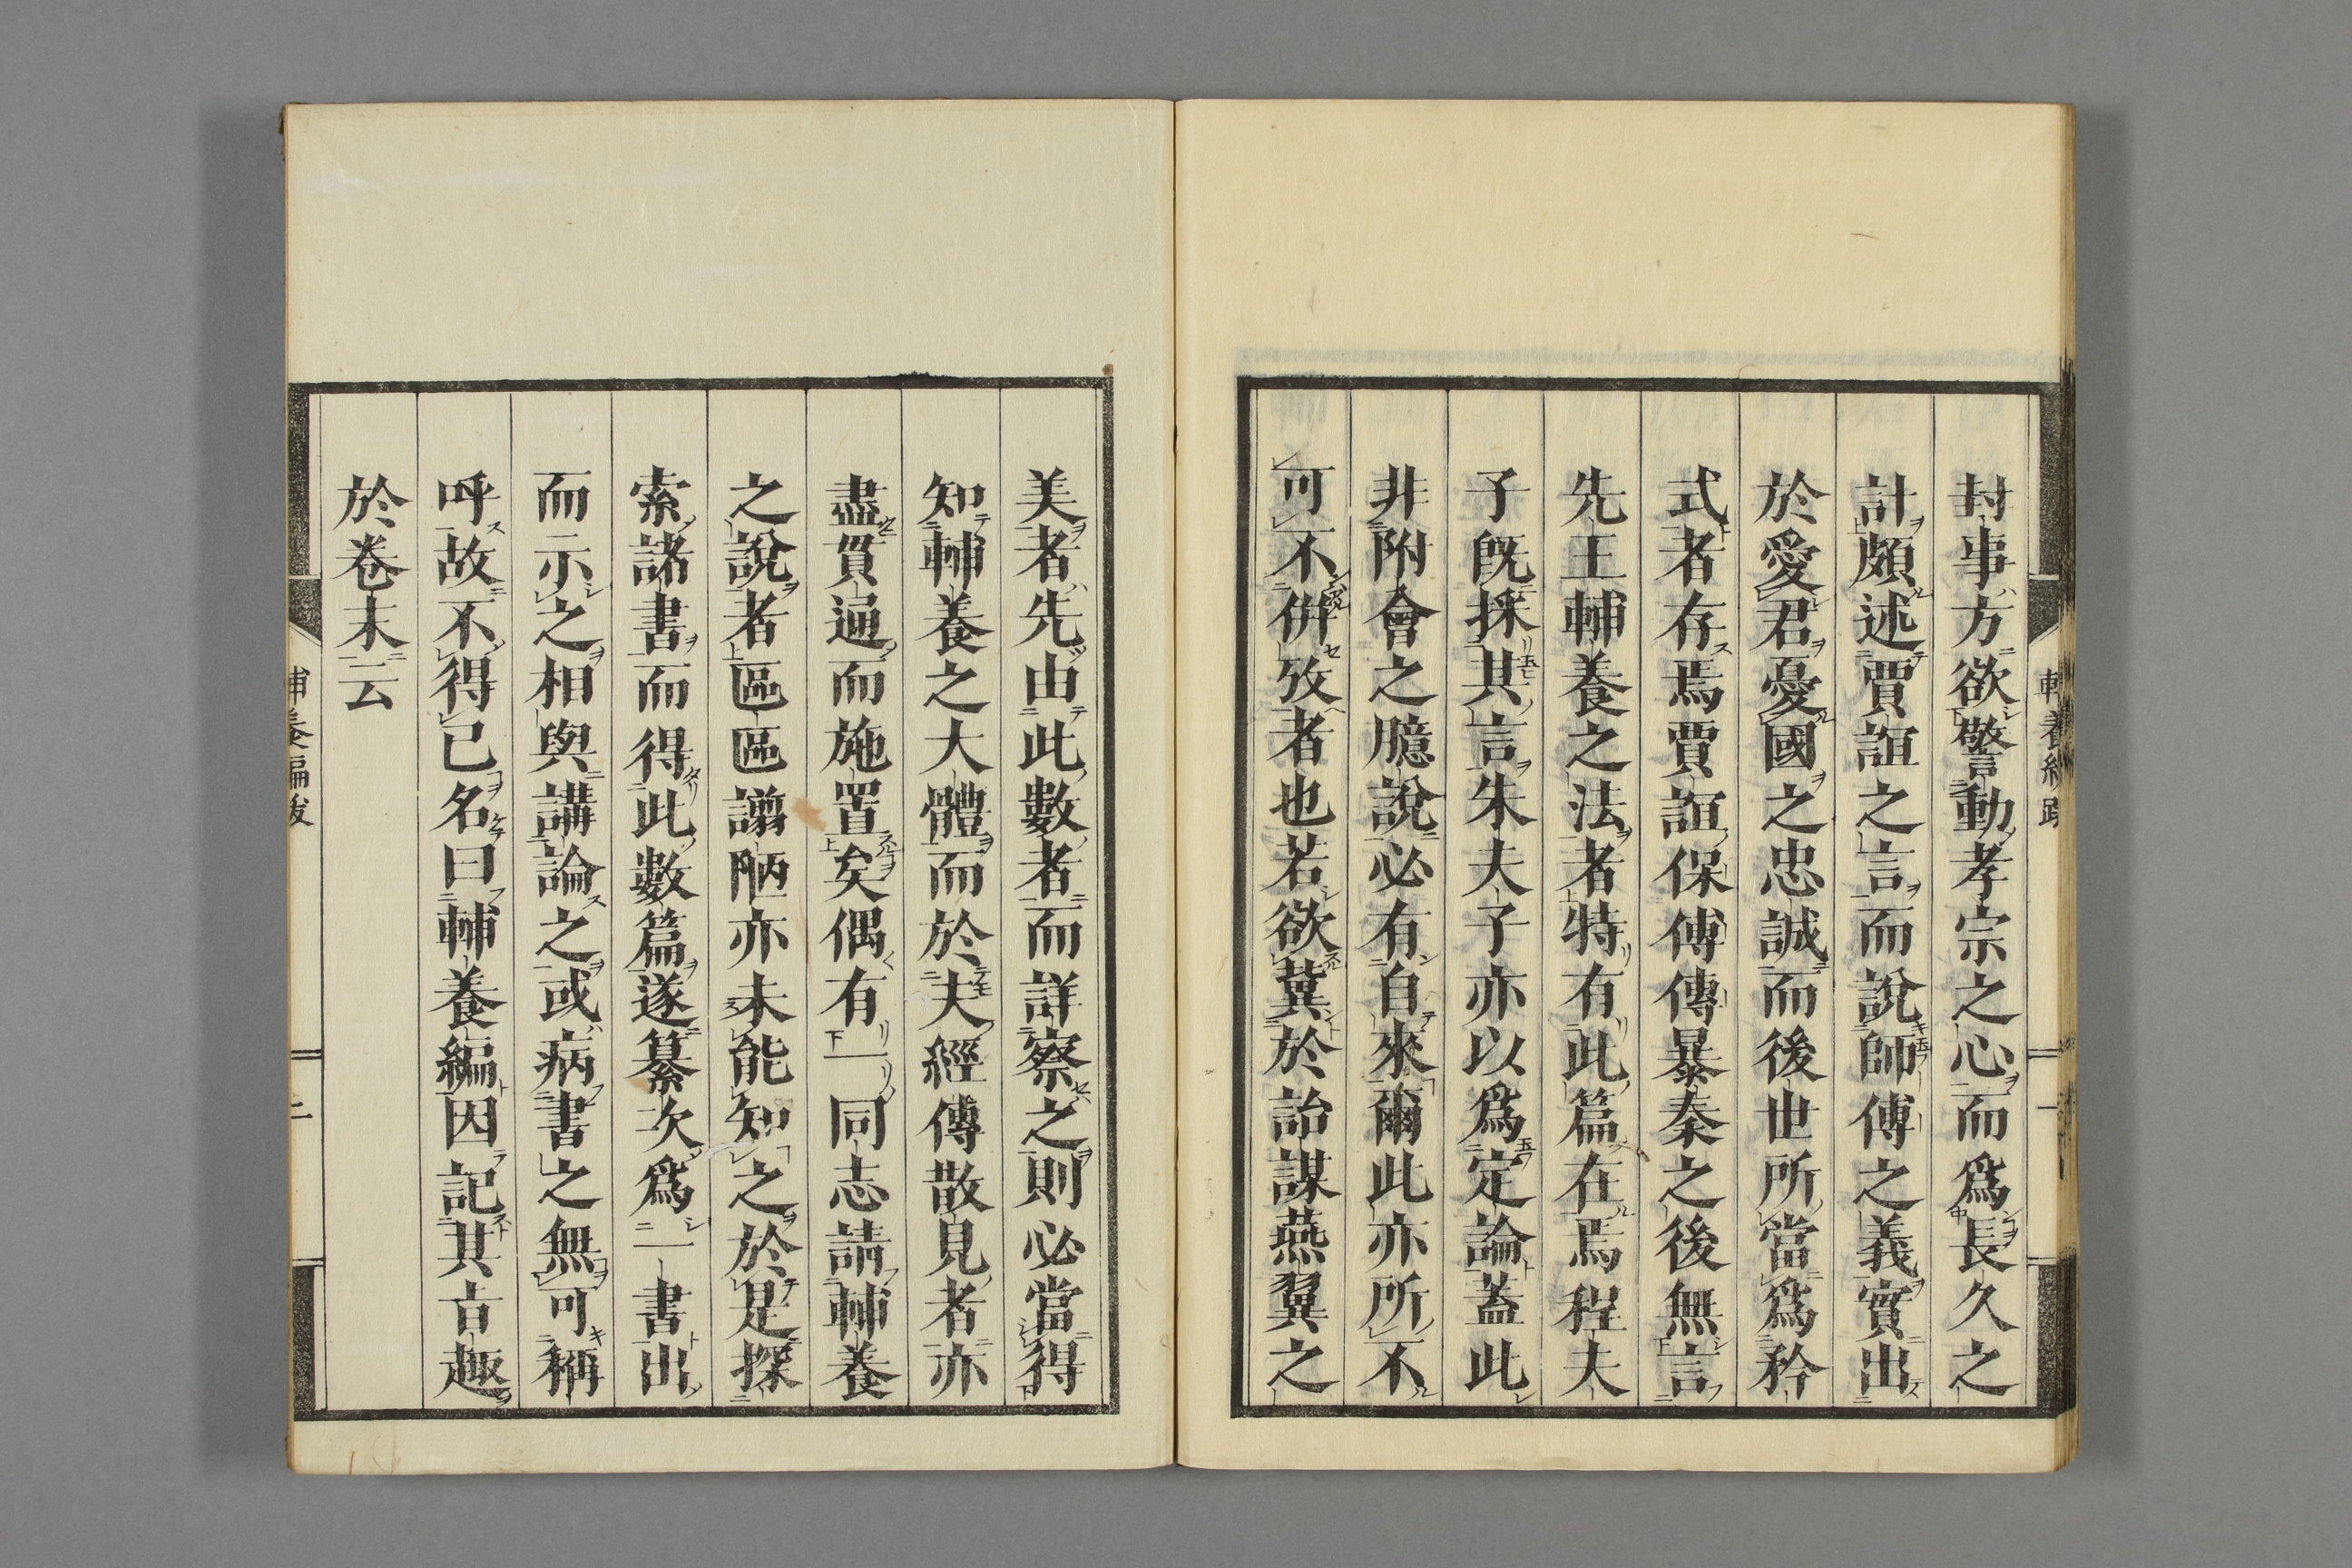 封事方欲警動孝宗之心而爲長久之
計頗述賈誼之言而說師傅之義實出
於愛君憂國之忠誠而後世所當爲矜
式者存焉賈誼保傅傳暴秦之後無言
先王輔養之法者特有此篇在焉程夫
子旣採其言朱夫子亦以爲定論蓋此
非附會之臆說必有自來爾此亦所不
可不併攷者也若欲冀於詒謀燕翼之
美者先由此數者而詳察之則必當得
知輔養之大體而於夫經傳散見者亦
盡貫通而施置矣偶有一二同志請輔養
之說者區區謭陋亦未能知之於是探
索諸書而得此數篇遂纂次爲一書出
而示之相與講論之或病書之無可稱
呼故不得已名曰輔養編因記其旨趣
於卷末云
輔養編跋
一
輔養編跋
二